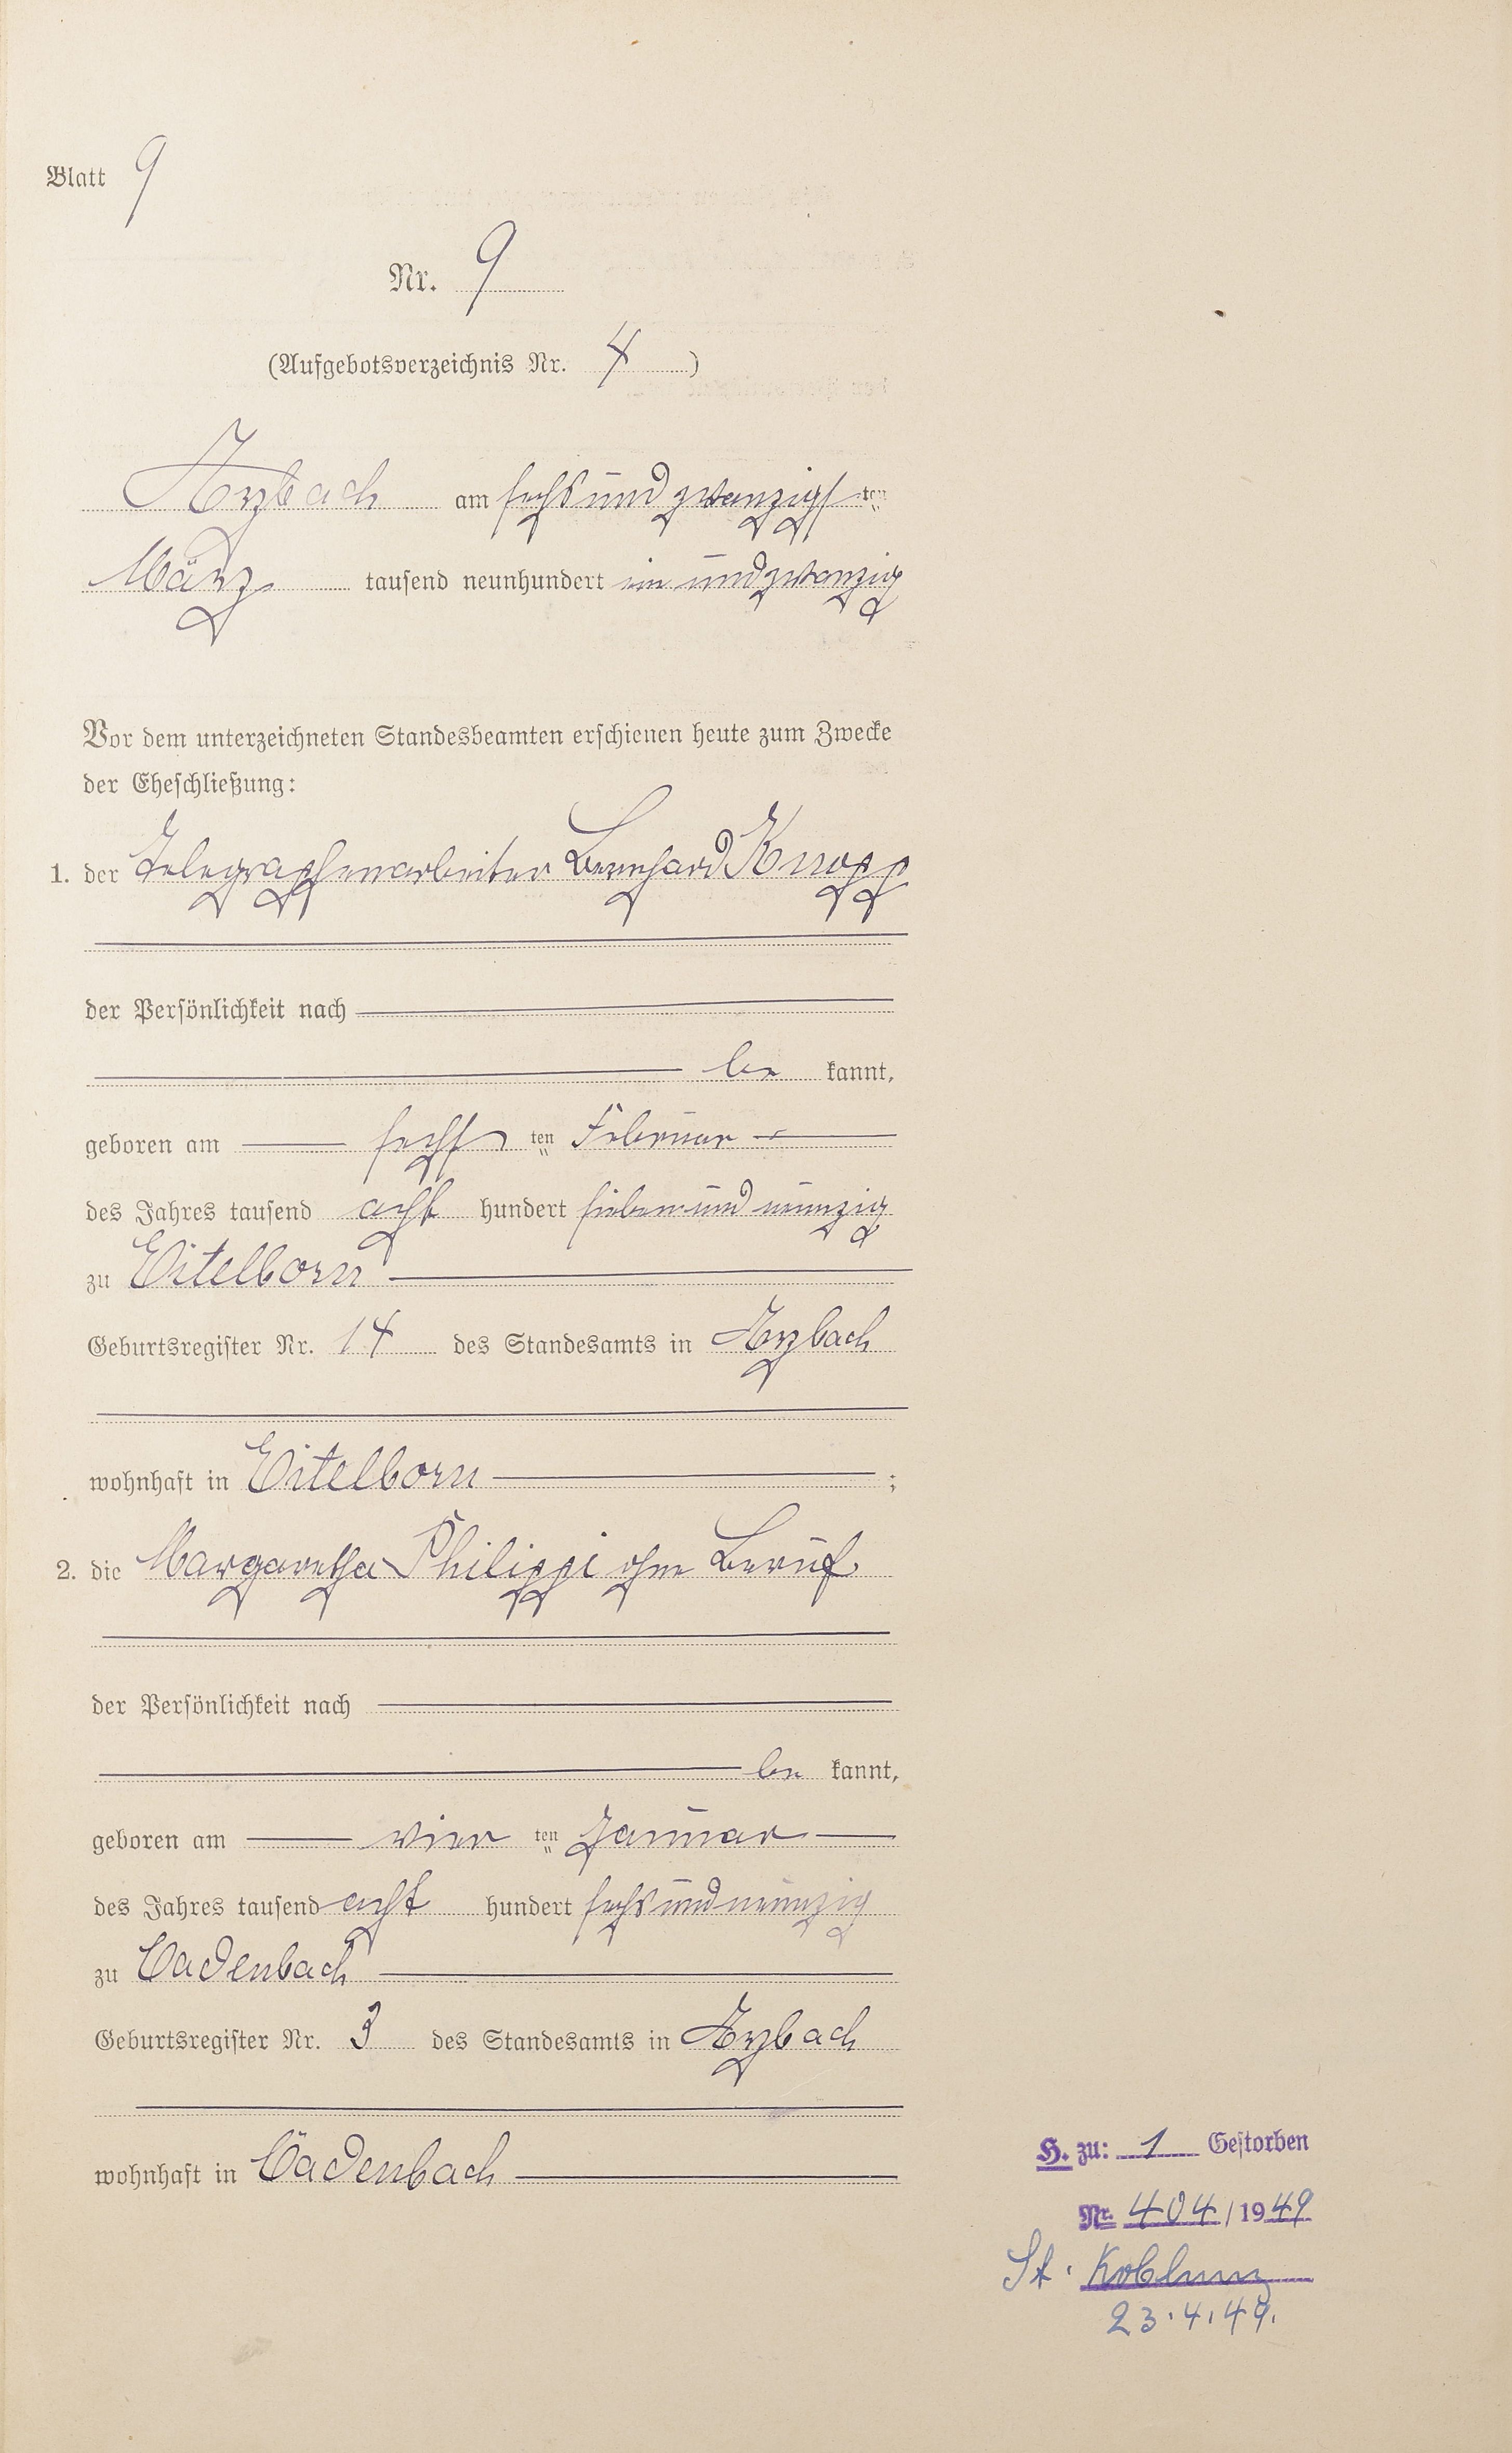 Blatt 9
Nr. 9
(Aufgebotsverzeichnis Nr. 4)
Arzbach am sechsundzwanzigsten
März tausend neunhundert ein undzwanzig
Vor dem unterzeichneten Standesbeamten erschienen heute zum Zwecke
der Eheschließung:
1. der Telegraphenarbeiter Bernhard Knopp
der Persönlichkeit nach
be kannt,
geboren am sechsten Februar
des Jahres tausend acht hundert siebenundneunzig
zu Eitelborn
Geburtsregister Nr. 14 des Standesamts in Arzbach
wohnhaft in Eitelborn ;
2. die Margaretha Philippi ohne Beruf
der Persönlichkeit nach
be kannt,
geboren am vierten Januar
des Jahres tausend acht hundert sechsundneunzig
zu Cadenbach
Geburtsregister Nr. 3 des Standesamts in Arzbach
wohnhaft in Cadenbach
H. zu: 1 Gestorben
Nr. 404/1949
St. Koblenz
23.4.49.